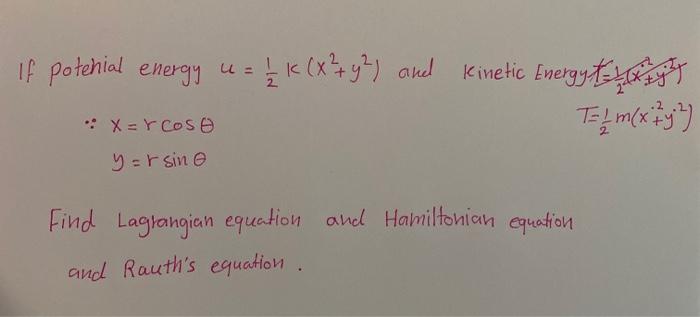 If potehial energy u = 1/2 k (x²+y²) and kinetic Energy
T=1/2 m(ẋ²+ẏ²)
∵ x = r cosθ
y = r sinθ
Find Lagrangian equation and Hamiltonian equation
and Rauth's equation .